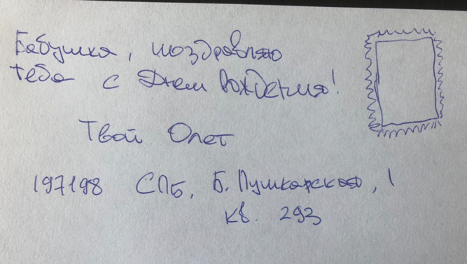 Бабушка, поздравляю
тебя с Днем Рождения!
Твой Олег
197198 СПБ, Б. Пушкарская, 1
кв. 293